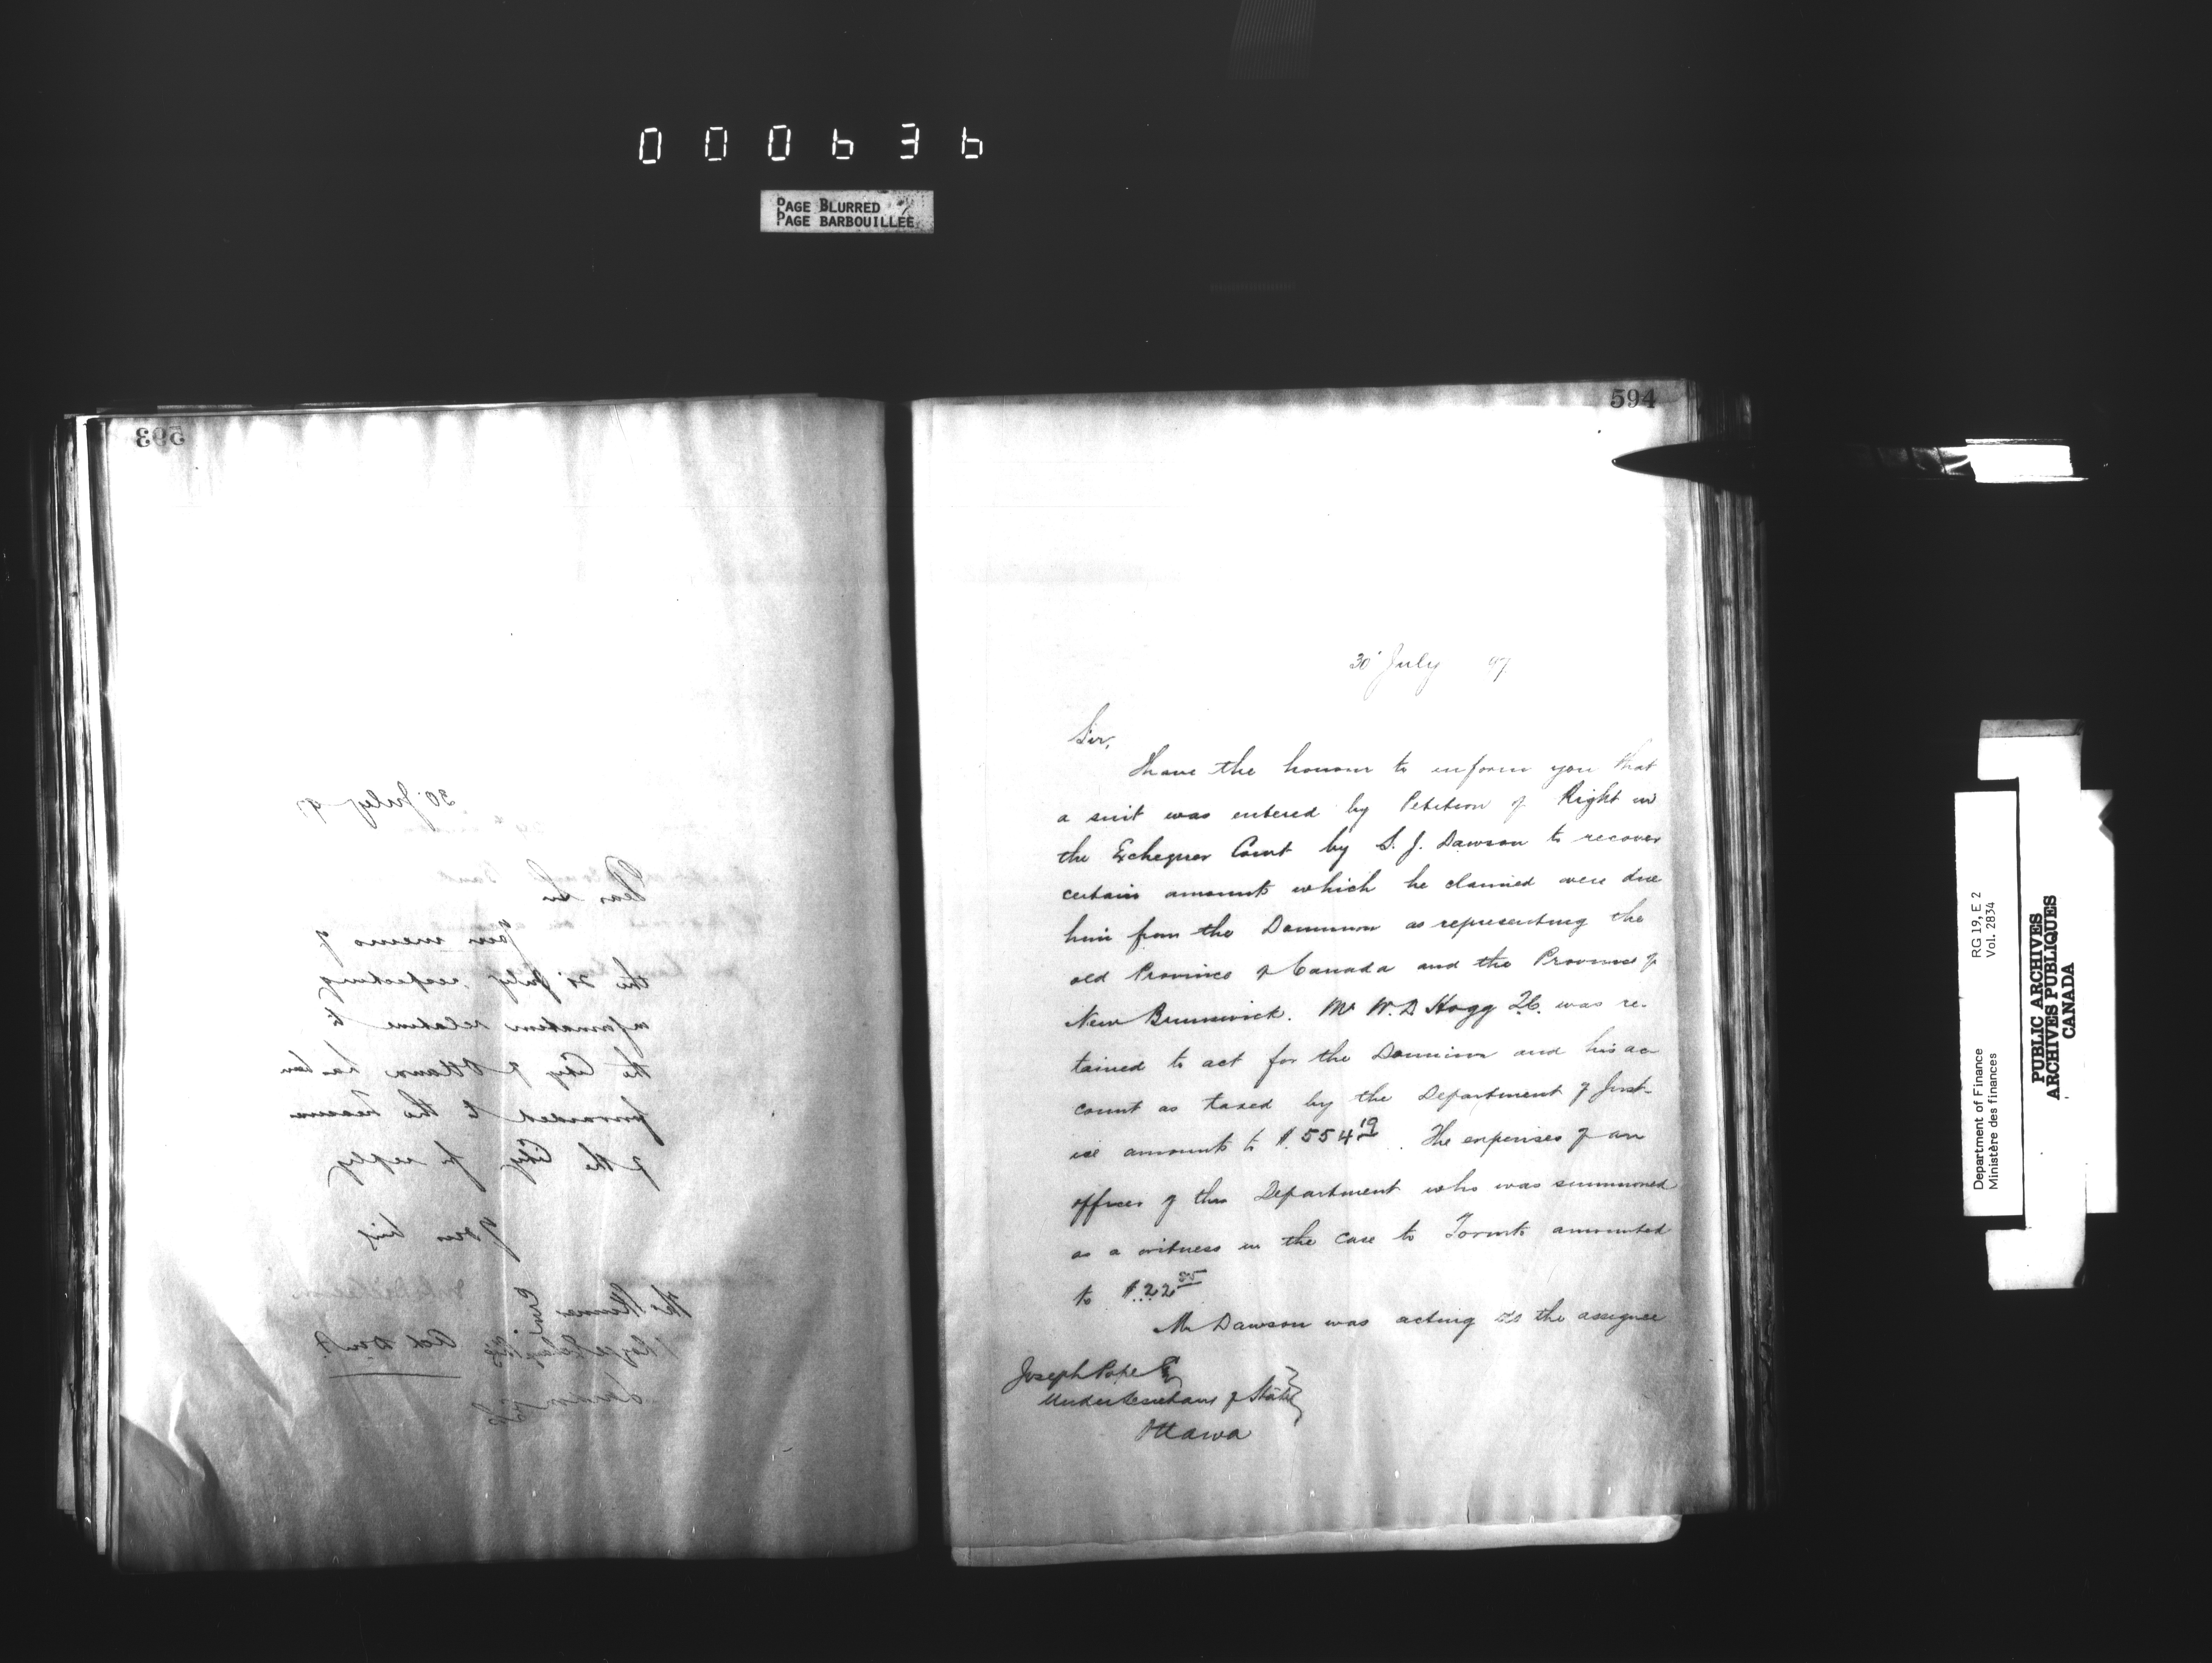 000636
PAGE BLURRED
PAGE BARBOUILLÉE
593
30 July 97
Dear Sir
Your memo of
the 21 July respecting
information relative to
the City of Ottawa has been
forwarded to the
of the City for reply
Yours truly
594
30 July 97
Sir,
I have the honour to inform you that
a suit was entered by Petition of Right in
the Exchequer Court by S. J. Dawson to recover
certain amounts which he claimed were due
him from the Dominion as representing the
old Province of Canada and the Province of
New Brunswick. Mr W. D Hogg Q.C. was re-
tained to act for the Dominion and his ac
count as taxed by the Department of Just-
ice amounts to $554 19. The expenses of an
officer of this Department who was summoned
as a witness in the case to Toronto amounted
to $22
Mr Dawson was acting as the assignee
Joseph Pope Esq
Under Secretary of State
Ottawa
Department of Finance RG 19, E 2
Ministère des finances Vol. 2834
PUBLIC ARCHIVES
ARCHIVES PUBLIQUES
CANADA